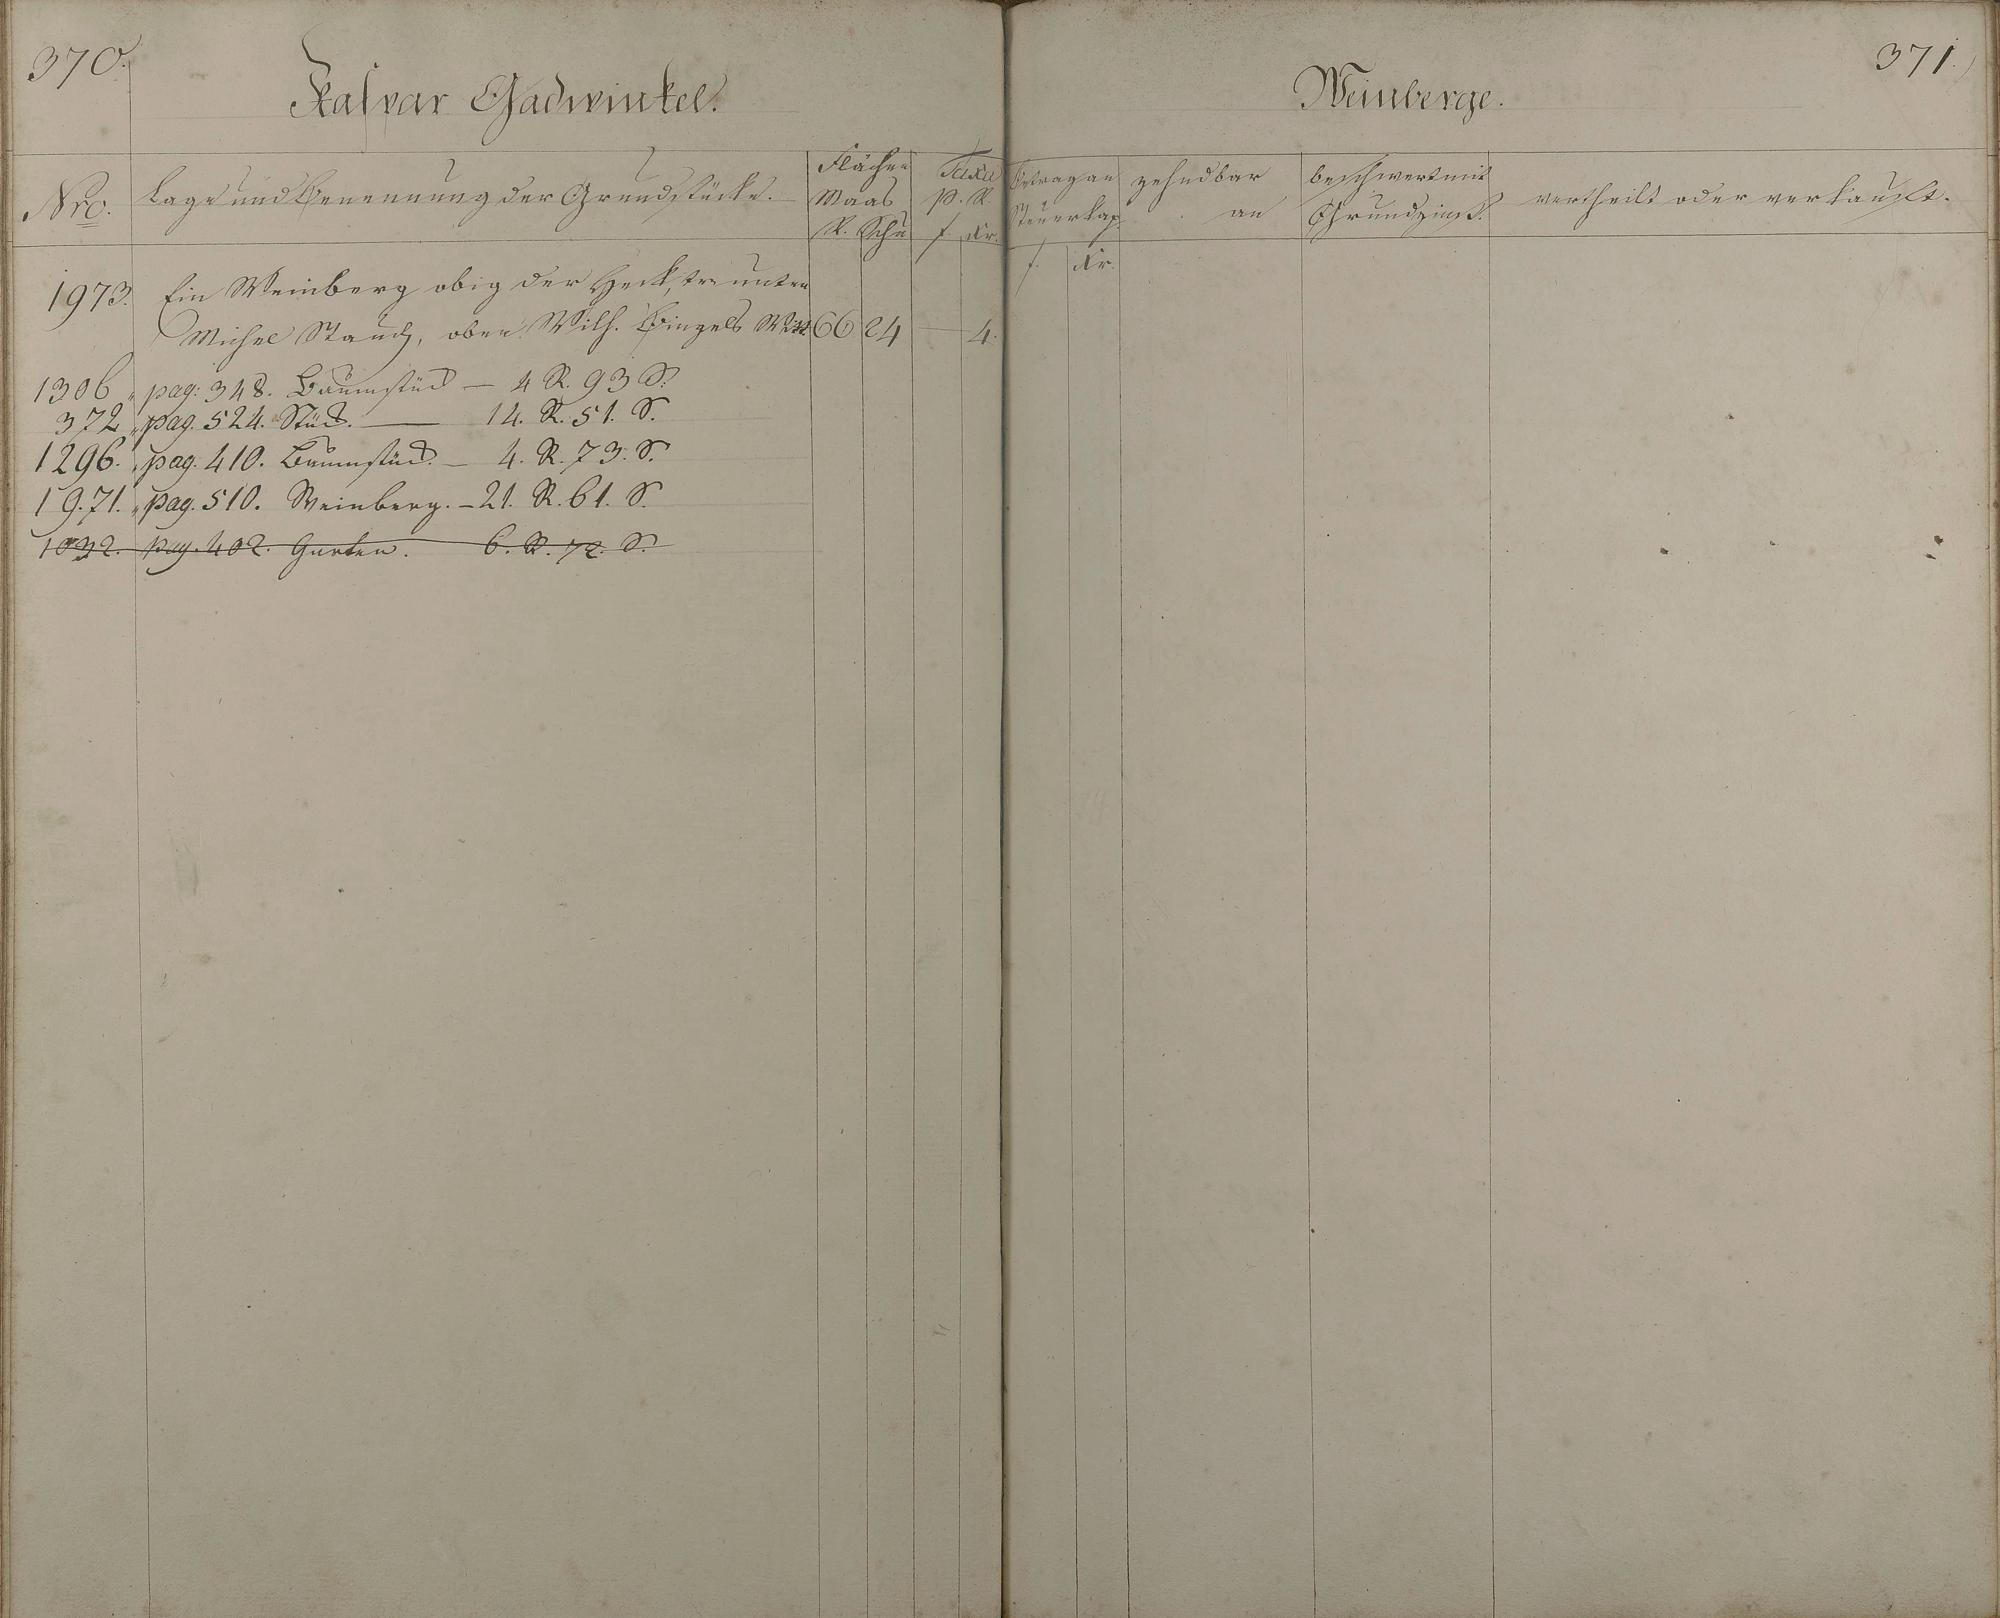 370.
Kaspar Gadwinkel.
Nro.
Lage und Benennung der Grundstücke.
Flächen
Maas
R. Schu
Taxa
p. R.
f. Kr.
1973. Ein Weinberg obig der Heck, unten
Michel Stauch, oben Wilh. Bingels Witt 66 24 — 4.
1306 " pag: 348. Baumstück — 4 R. 93 S.
372 " pag. 524. Stück. — 14. R. 51. S.
1296. " pag. 410. Baumstück. — 4. R. 73. S.
1971. " pag. 510. Weinberg. — 21. R. 61. S.
1032. pag. 402. Garten. 6. R. 72. S.
371.
Weinberge.
Betrag an
Steuerkap.
f. Kr.
zehndbar
an
beschwert mit
Grundzinß.
vertheilt oder verkauft.